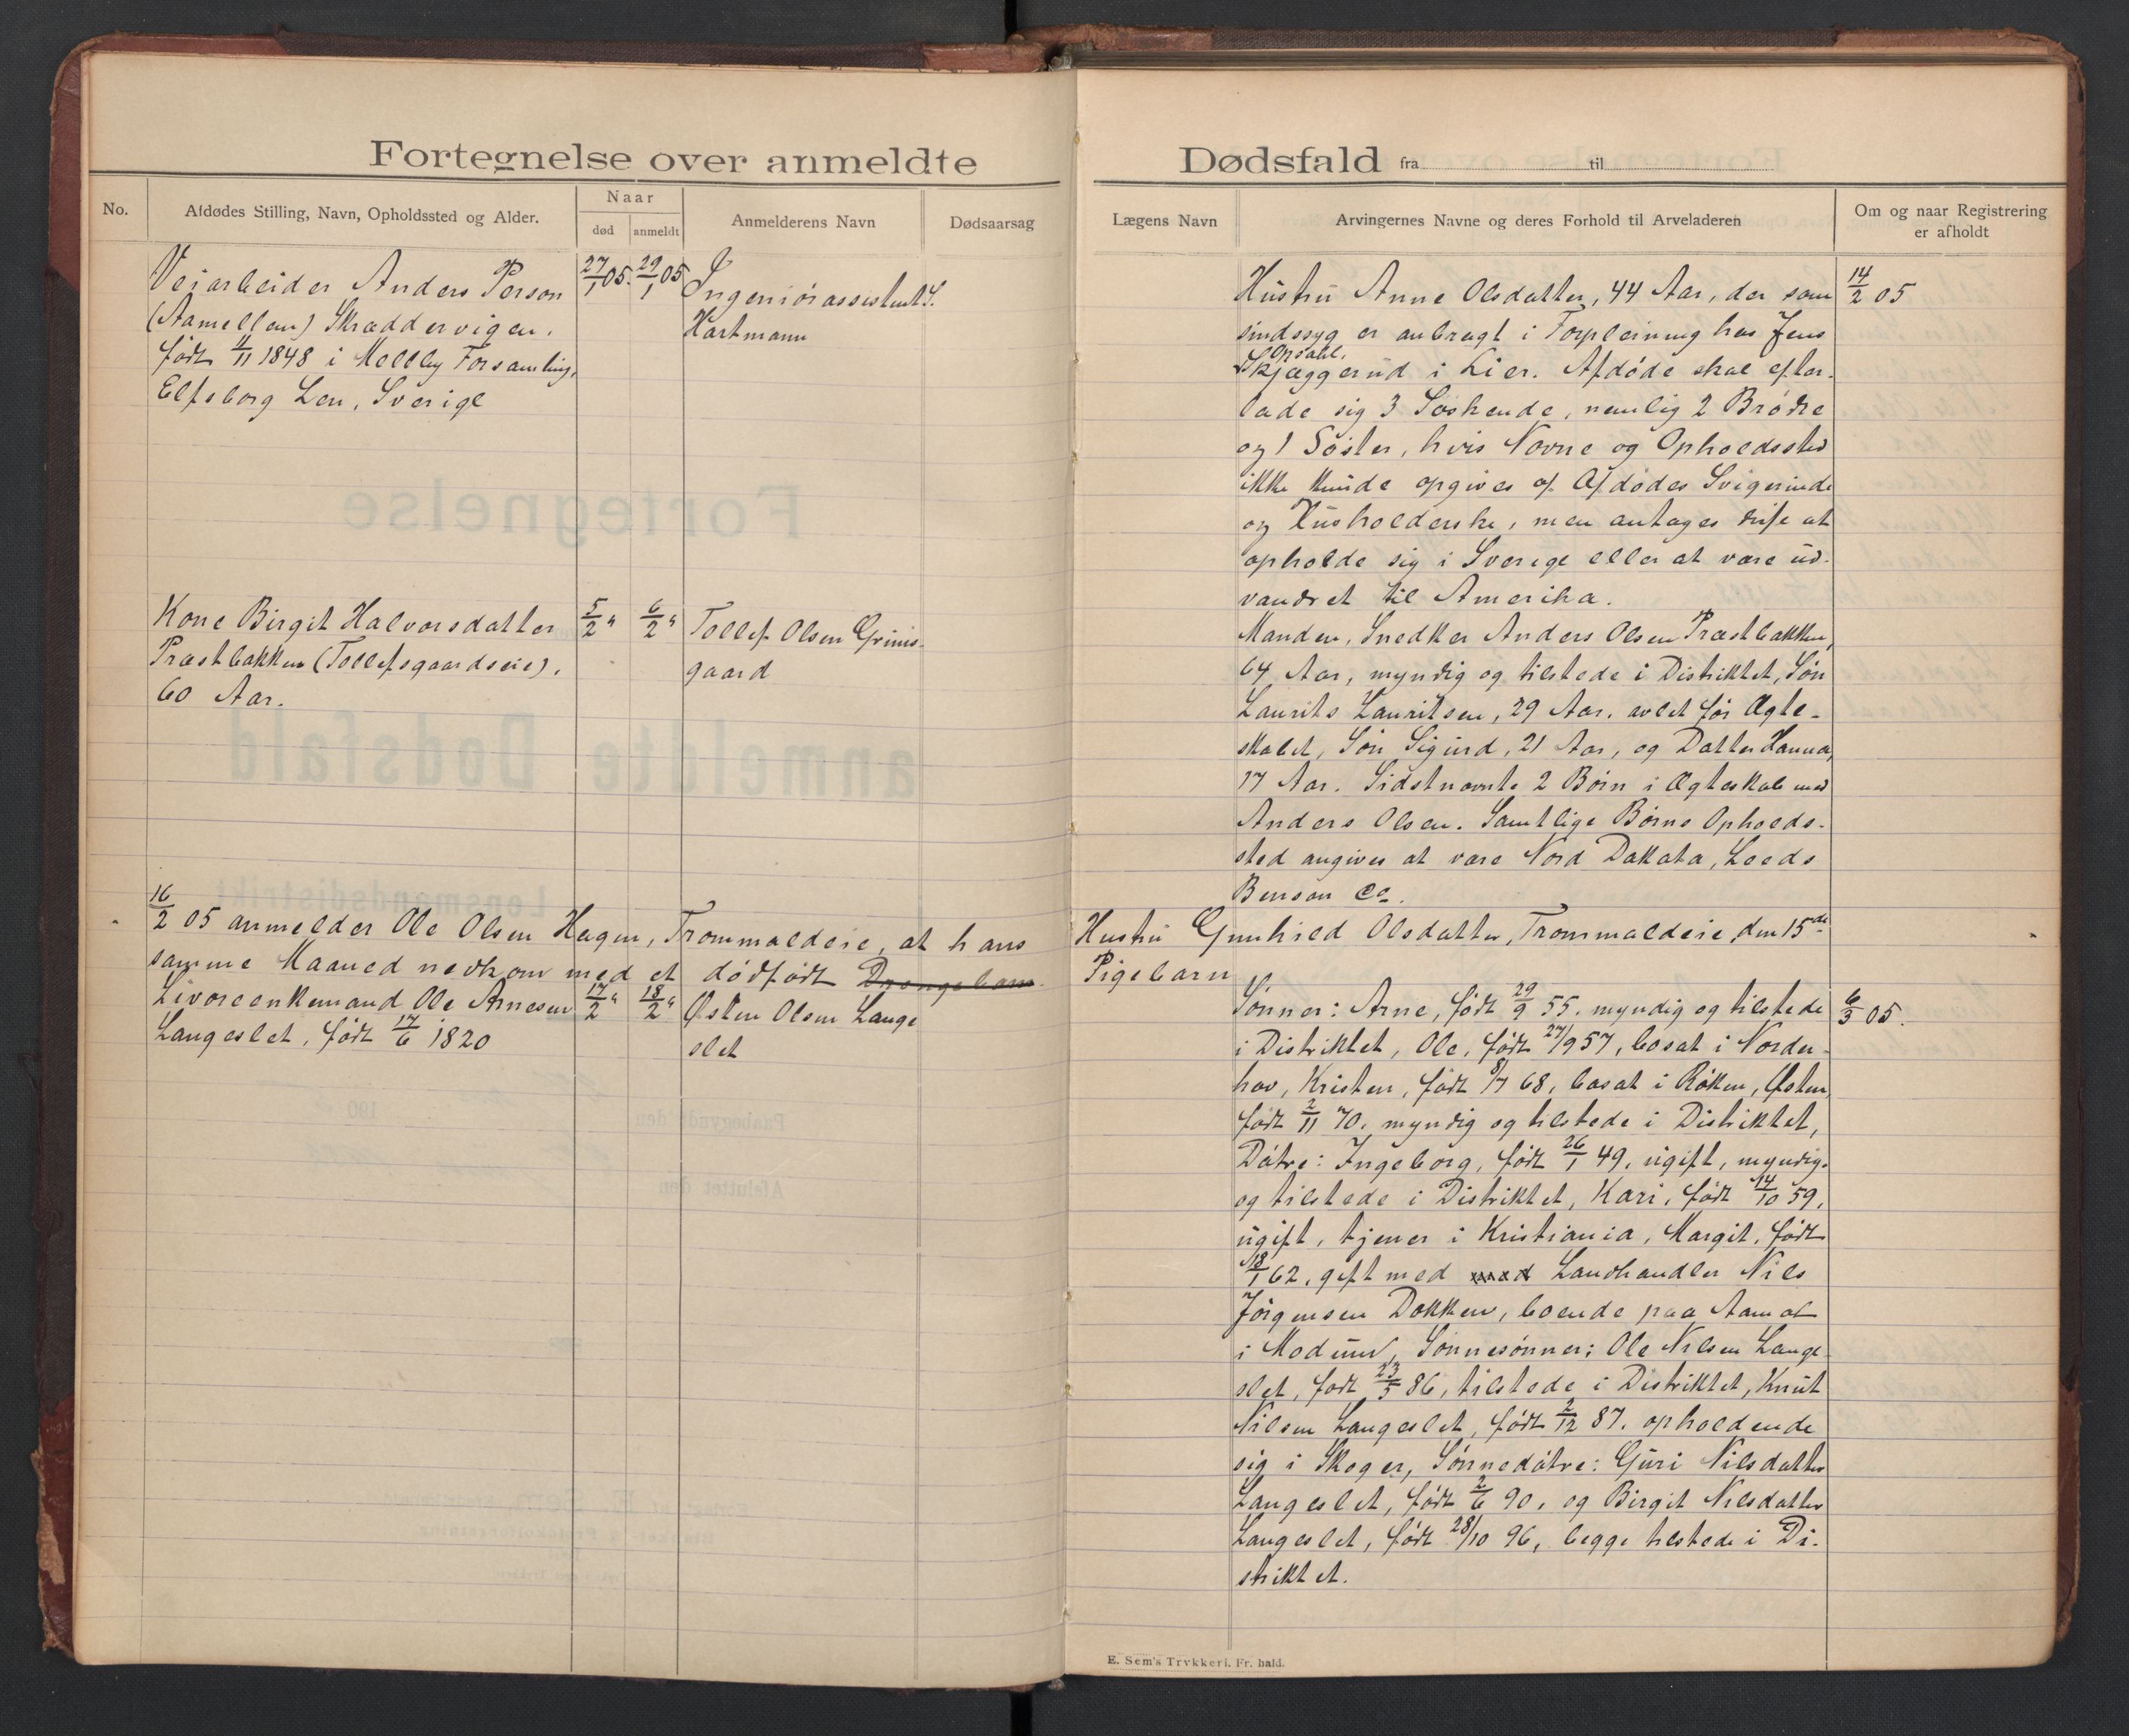 Fortegnelse over anmeldte Dødsfald fra til
No.
Afdødes Stilling, Navn, Opholdssted og Alder.
Naar
død
anmeldt
Anmelderens Navn
Dødsaarsag
Lægens Navn
Arvingernes Navne og deres Forhold til Arveladeren
Om og naar Registrering
er afholdt
Veiarbeider Anders Person
(Aamellem) Skræddervigen,
født 11/11 1848 i Mellby Forsamling,
Elfsborg Len, Sverige
27/1 05.
29/1 05
Ingeniørassistent S.
Hartmann
Hustru Anne Olsdatter, 44 Aar, der som
sindssyg er anbragt i Forpleining hos Jens
Opsahl,
Skjæggerud i Lier. Afdøde skal efter-
lade sig 3 Søskende, nemlig 2 Brødre
og 1 Søster, hvis Navne og Opholdssted
ikke kunde opgives af Afdødes Svigerinde
og Husholderske, men antages dels at
opholde sig i Sverige eller at være ud-
vandret til Amerika.
14/2 05
Kone Birgit Halvorsdatter
Præstbakken (Tollefsgaardseie),
60 Aar.
5/2 "
6/2 "
Tollef Olsen Grims-
gaard
Manden, Snedker Anders Olsen Præstbakken,
64 Aar, myndig og tilstede i Distriktet, Søn
Laurits Lauritsen, 29 Aar, avlet før Ægte-
skabet, Søn Sigurd, 21 Aar, og Datter Hanna,
17 Aar. Sidstnævnte 2 Børn i Ægteskab med
Anders Olsen. Samtlige Børns Opholds-
sted angives at være Nord Dakata, Leeds
Benson Co.
16/2 05 anmelder Ole Olsen Hagen, Trommaldeie, at hans Hustru Gunhild Olsdatter, Trommaldeie, den 15de
samme Maaned nedkom med et dødfødt Drengebarn. Pigebarn
Livøreenkemand Ole Arnesen
Langeslet, født 17/6 1820
17/2 "
18/2 "
Østen Olsen Lange
slet
Sønner: Arne, født 29/9 55, myndig og tilstede
i Distriktet, Ole, født 27/9 57, bosat i Norder-
hov, Kristen, født 8/7 68, bosat i Røken, Østen,
født 2/11 70, myndig og tilstede i Distriktet,
Døtre: Ingeborg, født 26/1 49, ugift, myndig
og tilstede i Distriktet, Kari, født 14/10 59,
ugift, tjener i Kristiania, Margit, født
18/1 62, gift med med Landhandler Nils
Jørgensen Dokken, boende paa Aamot
i Modum, Sønnesønner: Ole Nilsen Lange
slet, født 23/5 86, tilstede i Distriktet, Knut
Nilsen Langeslet, født 2/12 87, opholdende
sig i Skoger, Sønnedøtre: Guri Nilsdatter
Langeslet, født 2/6 90, og Birgit Nilsdatter
Langeslet, født 28/10 96, begge tilstede i Di-
striktet.
6/3 05.
E. Sem's Trykkeri, Fr. hald.